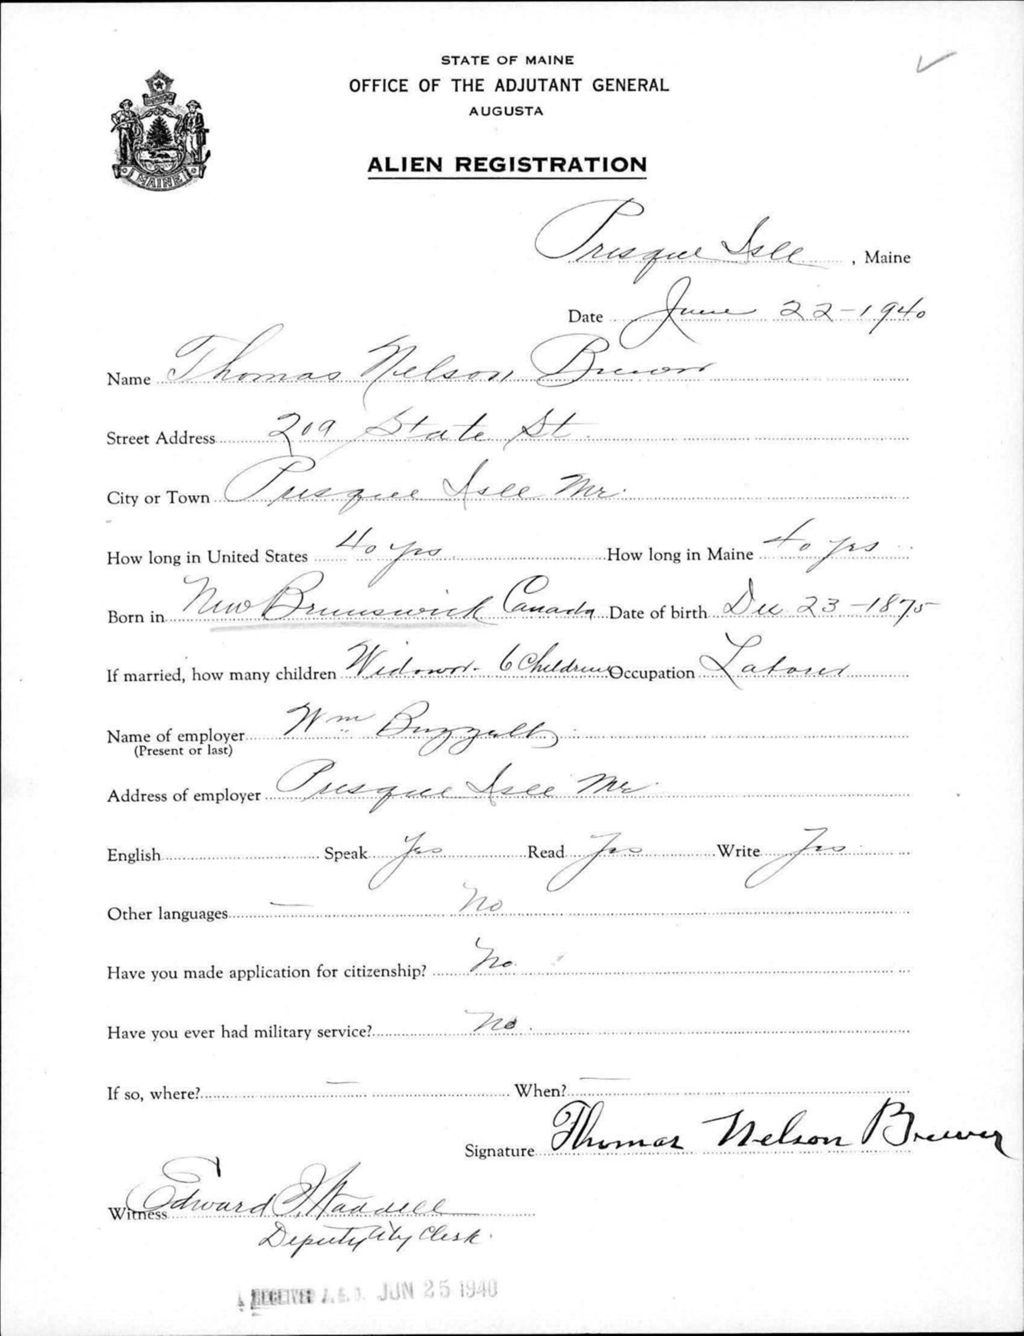 STATE OF MAINE
OFFICE OF THE ADJUTANT GENERAL
AUGUSTA
ALIEN REGISTRATION
MAINE
Presque Isle, Maine
Date June 22-1940
Name Thomas Nelson Brewer
Street Address 209 State St.
City or Town Presque Isle Me.
How long in United States 40 yrs How long in Maine 40 yrs
Born in New Brunswick Canada Date of birth Dec 23-1875
If married, how many children Widower. 6 Children Occupation Laborer
Name of employer Wm Buzzell
(Present or last)
Address of employer Presque Isle Me.
English Speak Yes Read Yes Write Yes
Other languages — No
Have you made application for citizenship? No
Have you ever had military service? No.
If so, where? — When? —
Signature Thomas Nelson Brewer
Witness Edward Waddell
Deputy City Clerk.
RECEIVED A.G.O. JUN 25 1940